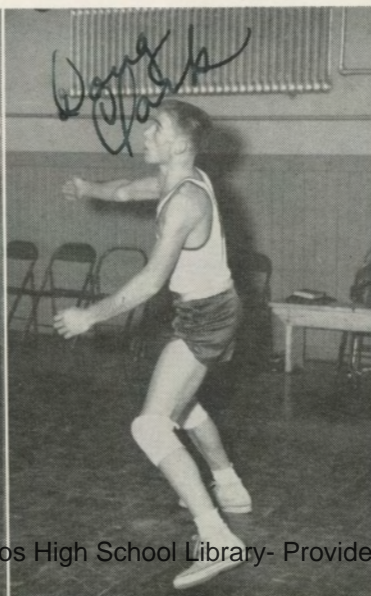 Doug
Clark
os High School Library- Provide